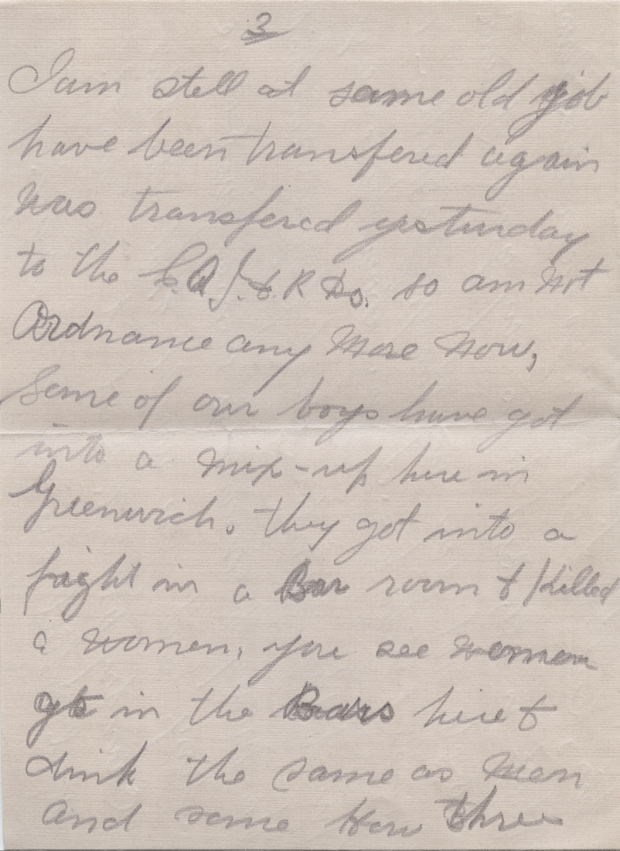 3
I am still at same old job
have been transfered again
was transfered yesturday
to the Co. so am not
Ordnance any more now,
Some of our boys have got
into a mix-up here in
Greenwich. they got into a
fight in a Bar room & killed
a women, you see women
go in the Bars here &
drink the same as men
and some how three